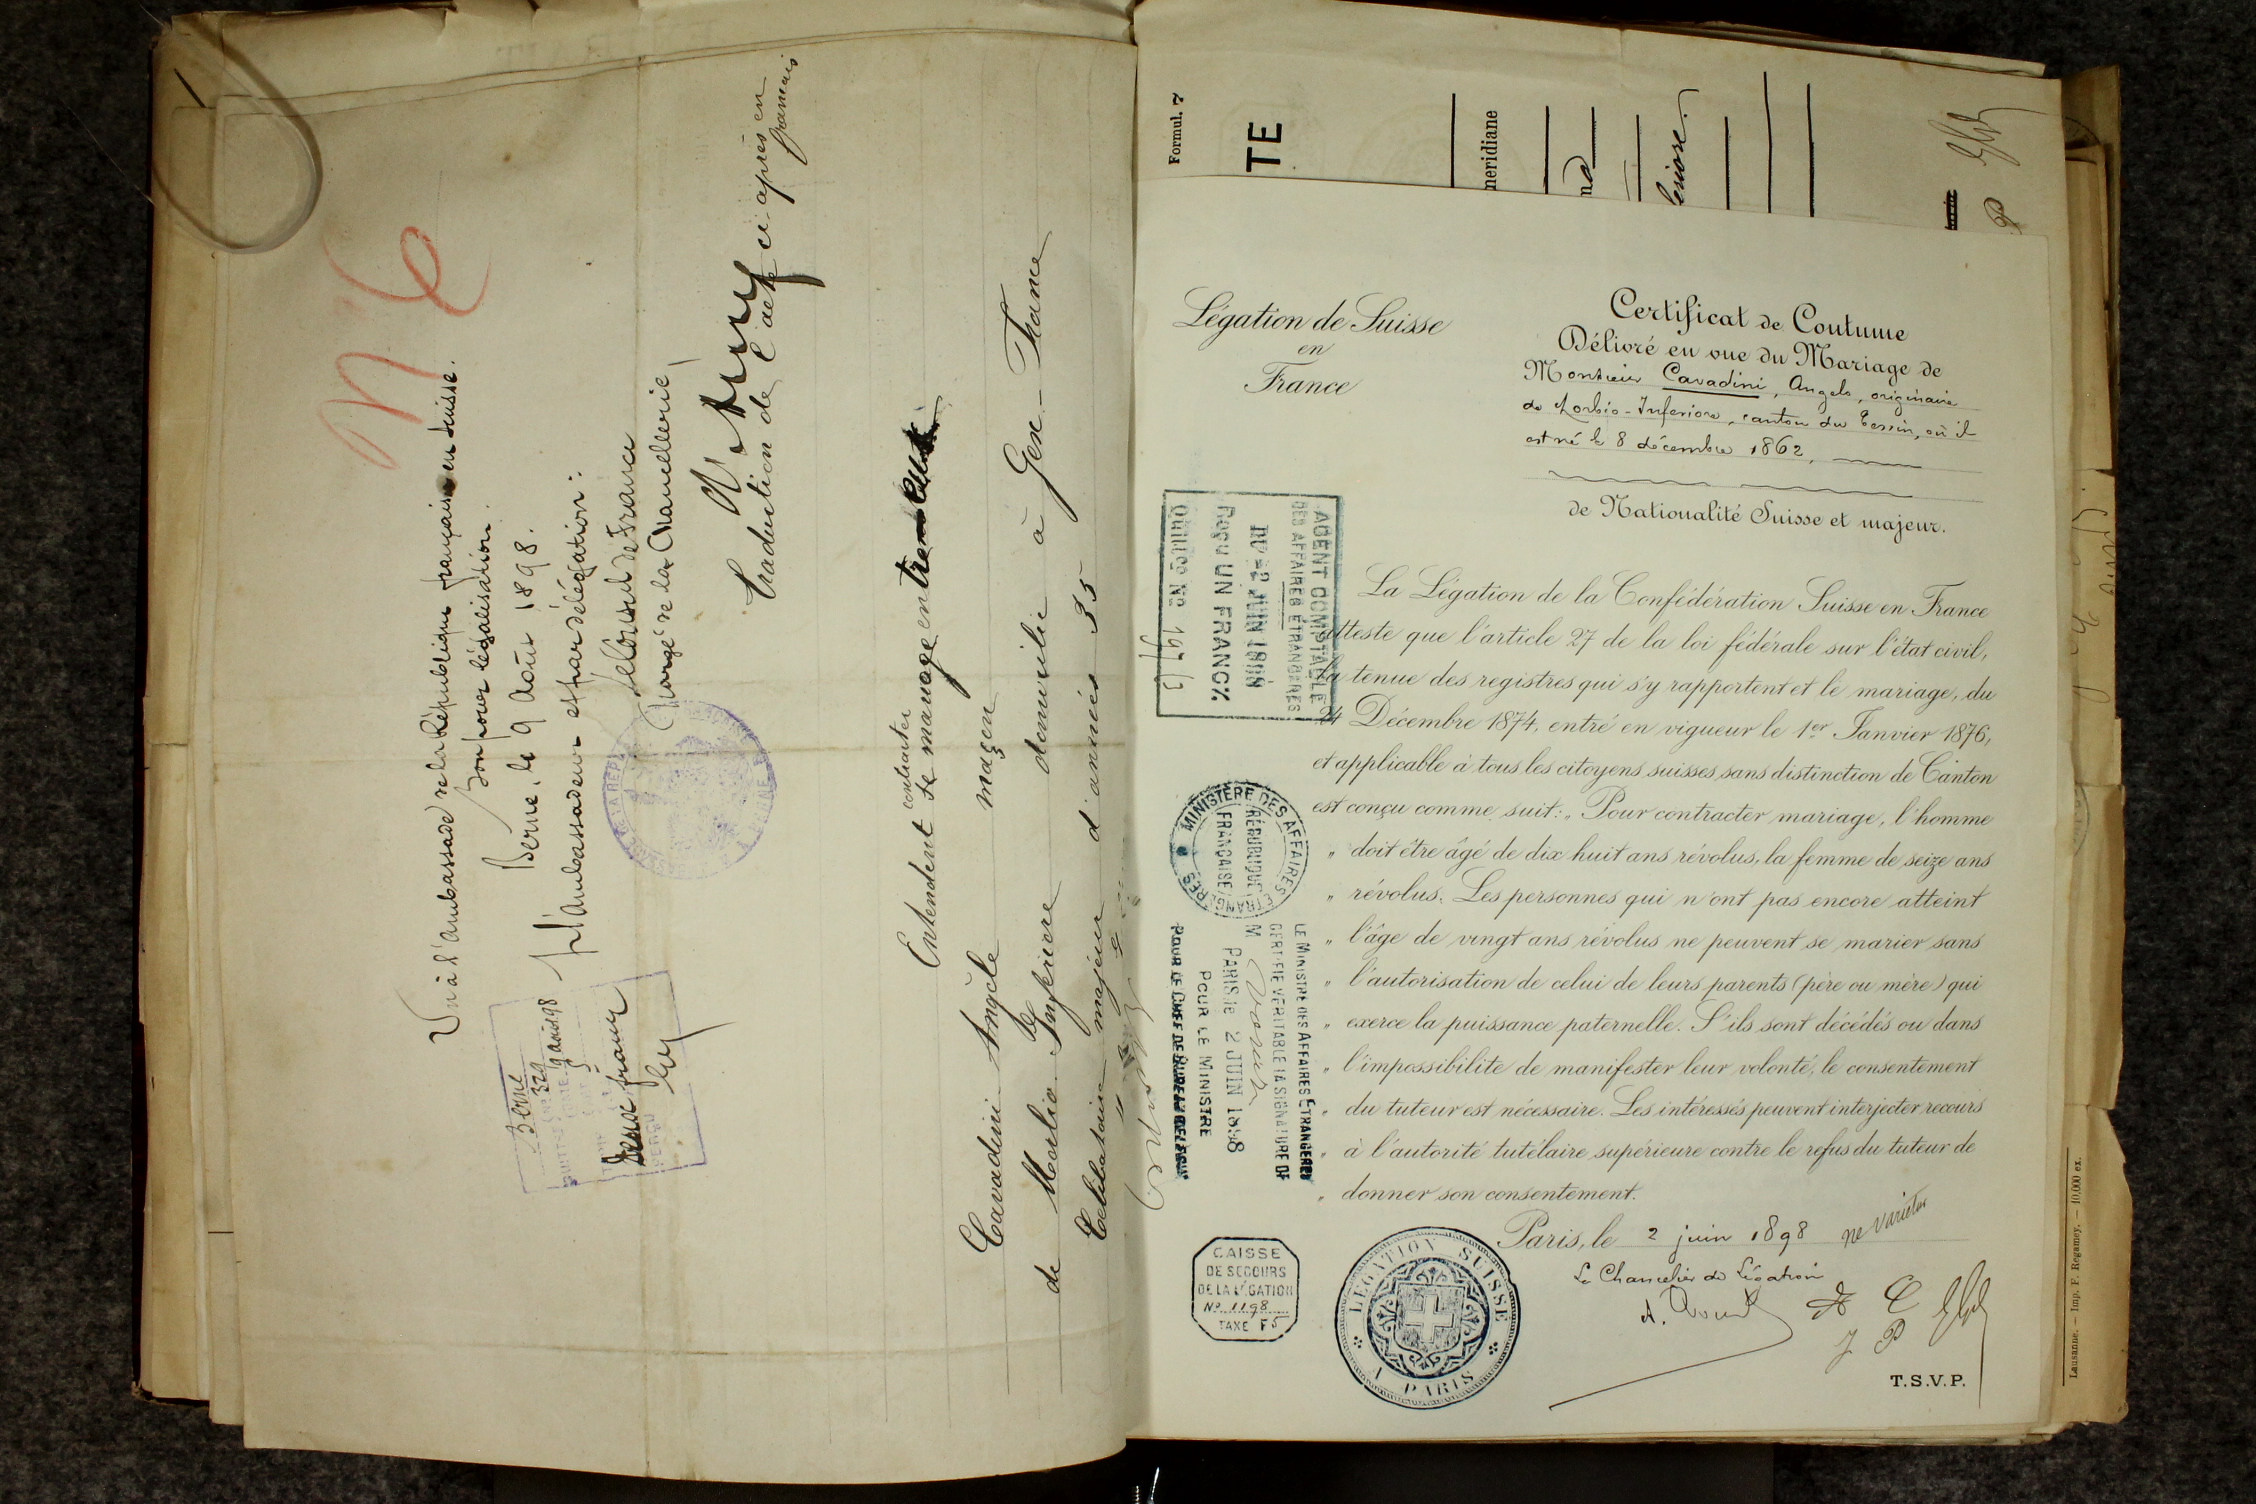 Vu à l'ambassade de la République française en Suisse.
Bon pour légalisation.
Berne, le 9 Août 1898.
p. l'Ambassadeur et par délégation:
le Consul de France
Chargé de la Chancellerie,
Berne
329
9 août 98
PERÇU
Traduction de l'acte ci-après en
français
Entendent contracter le mariage
Cavadini Angèle maçon
de Morbio Inférieur domicilié à Gex-France
Célibataire majeur d'années 35
Formul. 7
TE
meridiane
Légation de Suisse
en
France
Certificat de Coutume
Délivré en vue du Mariage de
Monsieur Cavadini, Angelo, originaire
de Morbio-Inferiore, canton du Tessin, où il
est né le 8 décembre 1862,
de Nationalité Suisse et majeur.
AGENT COMPTABLE
DES AFFAIRES ÉTRANGÈRES
DU 2 JUIN 1898
Reçu UN FRANC %
La Légation de la Confédération Suisse en France
atteste que l'article 27 de la loi fédérale sur l'état civil,
la tenue des registres qui s'y rapportent et le mariage, du
24 Décembre 1874, entré en vigueur le 1er Janvier 1876,
et applicable à tous les citoyens suisses sans distinction de Canton
est conçu comme suit: „Pour contracter mariage, l'homme
„ doit être âgé de dix huit ans révolus, la femme de seize ans
„ révolus. Les personnes qui n'ont pas encore atteint
„ l'âge de vingt ans révolus ne peuvent se marier sans
„ l'autorisation de celui de leurs parents (père ou mère) qui
„ exerce la puissance paternelle. S'ils sont décédés ou dans
„ l'impossibilite de manifester leur volonté, le consentement
„ du tuteur est nécessaire. Les intéressés peuvent interjecter recours
„ à l'autorité tutélaire supérieure contre le refus du tuteur de
„ donner son consentement.
MINISTÈRE DES AFFAIRES ÉTRANGÈRES
RÉPUBLIQUE
FRANÇAISE
LE MINISTRE DES AFFAIRES ETRANGERES
CERTIFIE VERITABLE LA SIGNATURE DE
M
PARIS, le 2 JUIN 1898
POUR LE MINISTRE
POUR LE CHEF DE BUREAU DÉLÉGUÉ
Paris, le 2 juin 1898 ne varietur
Le Chancelier de Légation
CAISSE
DE SECOURS
DE LA LÉGATION
No 1198
TAXE F 5
LÉGATION SUISSE
A PARIS
T.S.V.P.
Lausanne. – Imp. F. Regamey. – 10,000 ex.